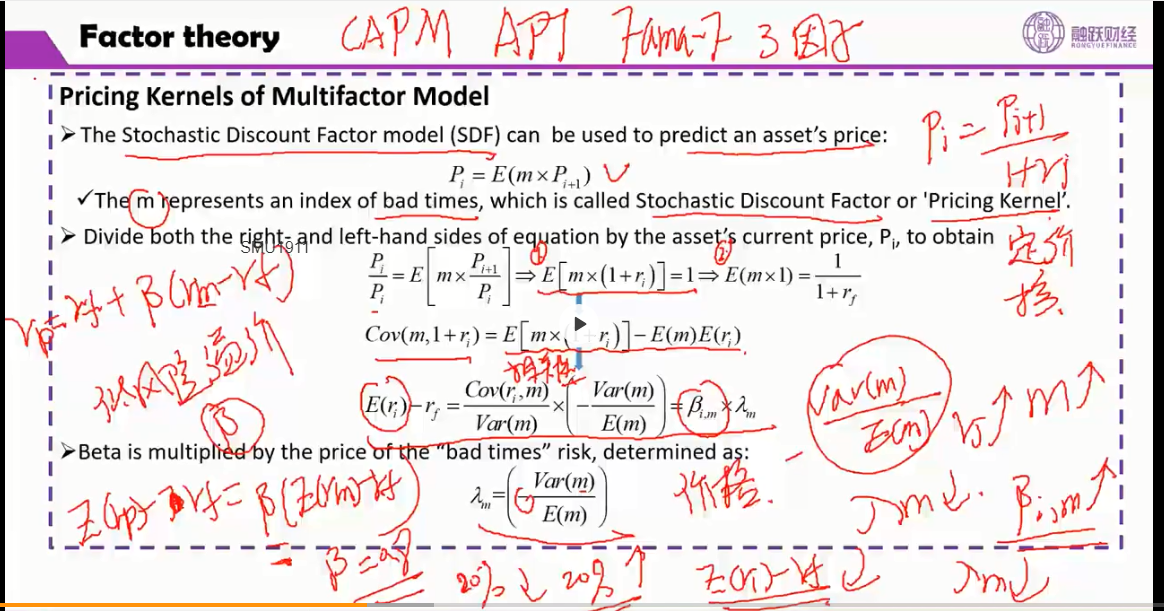 Factor theory CAPM APT Fama-F 3因子 融跃财经
RONGYUEFINANCE
Pricing Kernels of Multifactor Model
➤ The Stochastic Discount Factor model (SDF) can be used to predict an asset's price:
P_i = E(m × P_{i+1}) ✓
P_i = P_{i+1} / (1+r_i)
✓ The m represents an index of bad times, which is called Stochastic Discount Factor or 'Pricing Kernel'.
➤ Divide both the right- and left-hand sides of equation by the asset's current price, P_i, to obtain
SMU1911
定价核
① ②
P_i / P_i = E[m × P_{i+1} / P_i] ⇒ E[m × (1 + r_i)] = 1 ⇒ E(m × 1) = 1 / (1 + r_f)
r_p = r_f + β(r_m − r_f)
Cov(m, 1 + r_i) = E[m × (1 + r_i)] − E(m)E(r_i)
风险溢价
β
E(r_i) − r_f = Cov(r_i, m) / Var(m) × (− Var(m) / E(m)) = β_{i,m} × λ_m
Var(m) / E(m)
m ↑
➤ Beta is multiplied by the price of the "bad times" risk, determined as:
λ_m = (− Var(m) / E(m))
价格
λm ↓ β_{i,m} ↑
E(r_p) − r_f = β(E(r_m) − r_f)
β = 0.8 20% ↓ 20% ↑ E(r_i) − r_f ↓ λm ↓